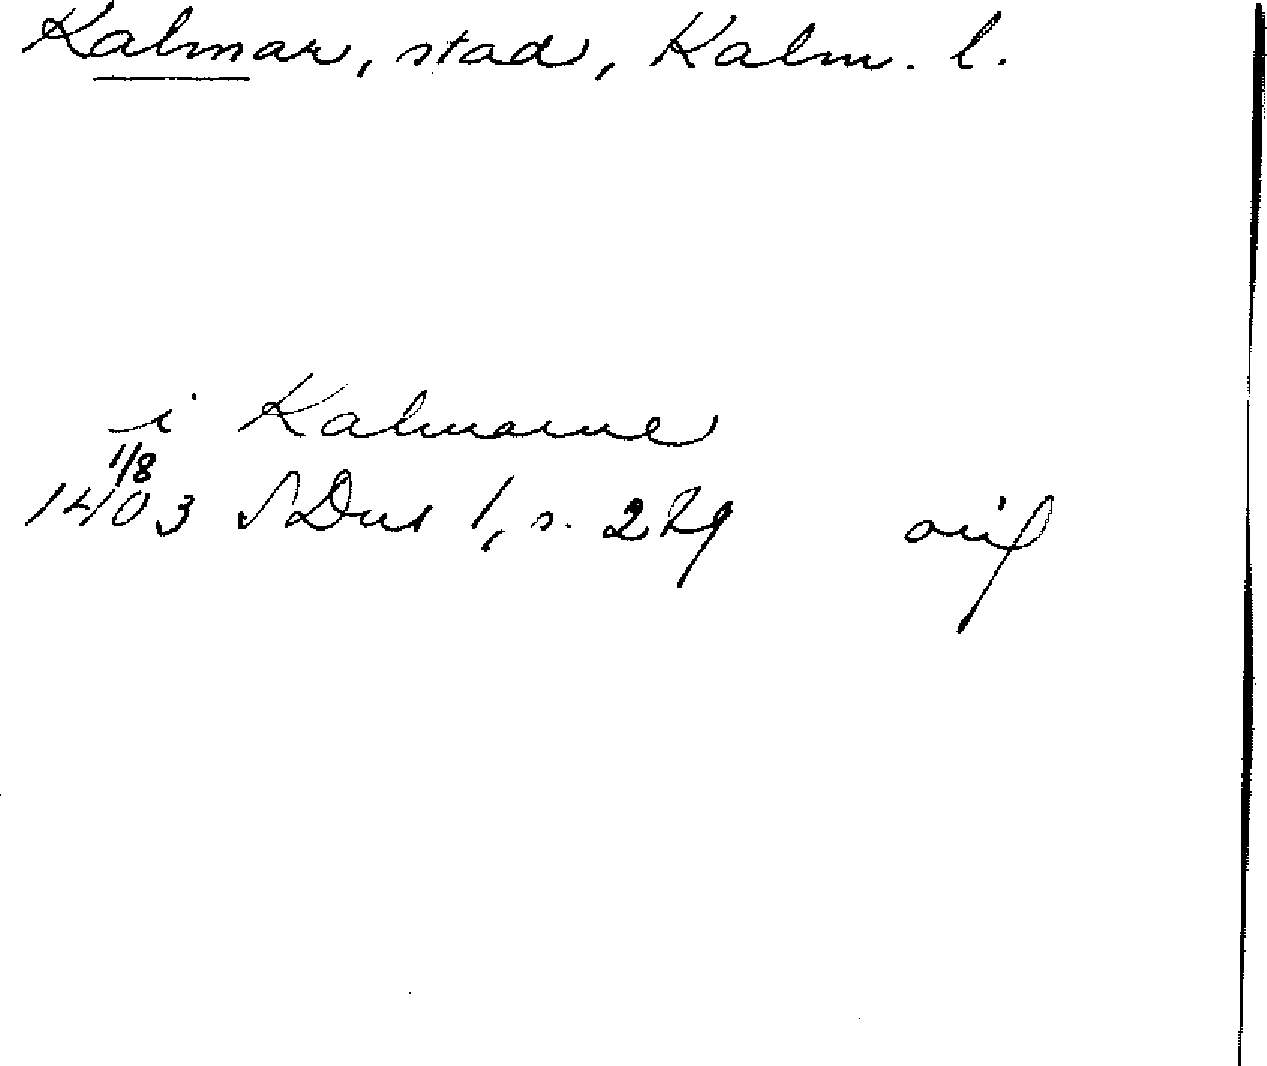 Kalmar, stad, Kalm. l.
i Kalmarne
1/8
1403 SDns 1, s. 229 orig